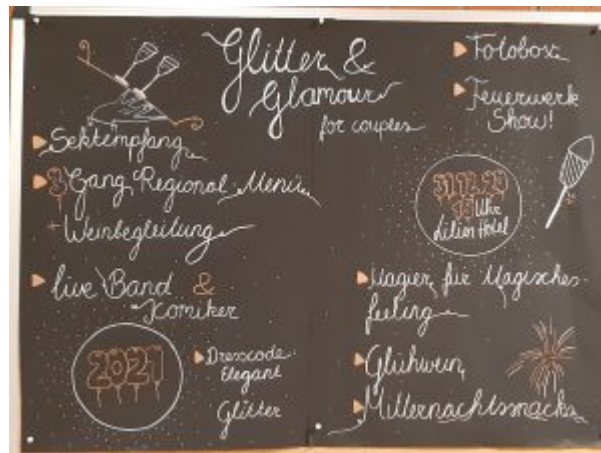 Glitter &
Glamour
for couples
Sektempfang
8 Gang Regional Menü
+ Weinbegleitung
live Band &
Komiker
2021
Dresscode:
Elegant
Glitter
Fotobox
Feuerwerk
Show!
31.12.20
18 Uhr
Lilien Hotel
Magier für Magisches
feeling
Glühwein
Mitternachtssnack